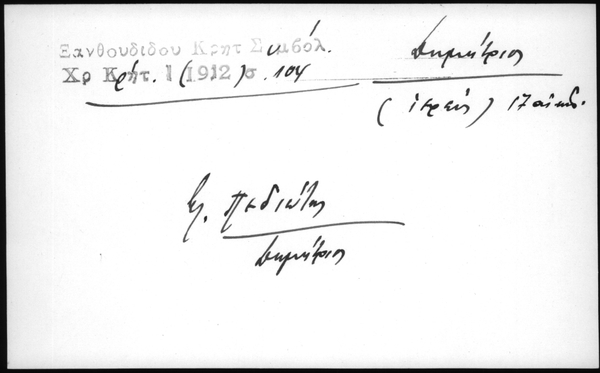 Ξανθουδίδου Κρητ Συμβόλ.
Χρ Κρήτ. 1 (1912) σ. 104
Δημήτριος
(ἱερεύς) 17 αἰών.
βλ. Πεδιώτης
Δημήτριος